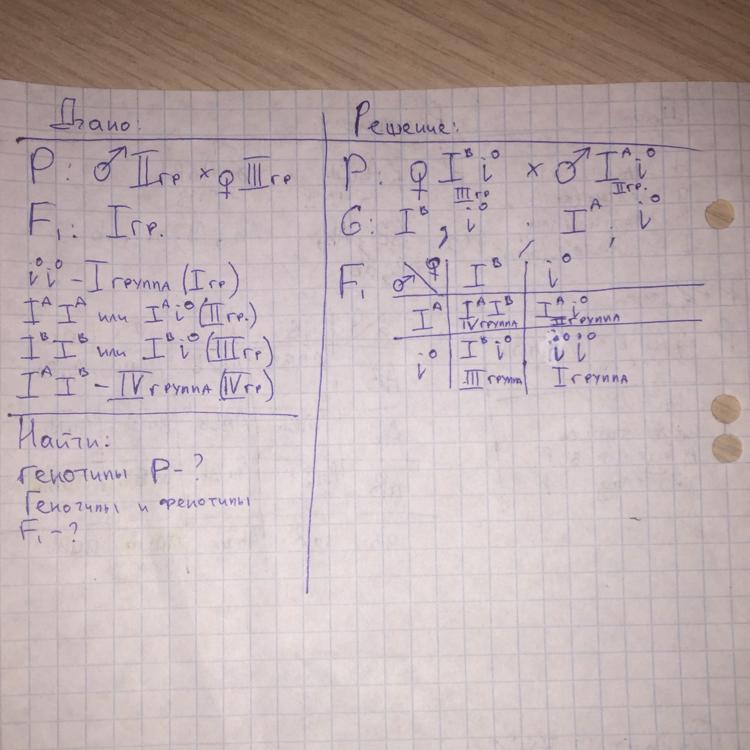 Дано:
P: ♂ II гр × ♀ III гр
F₁: I гр.
i⁰i⁰ – I группа (I гр)
Iᴬ Iᴬ или Iᴬ i⁰ (II гр.)
Iᴮ Iᴮ или Iᴮ i⁰ (III гр)
Iᴬ Iᴮ – IV группа (IV гр)
Найти:
генотипы P – ?
Генотипы и фенотипы
F₁ – ?
Решение:
P: ♀ Iᴮ i⁰ × ♂ Iᴬ i⁰
III гр II гр.
G: Iᴮ, i⁰ , Iᴬ, i⁰
F₁ ♂ ♀ Iᴮ i⁰
Iᴬ Iᴬ Iᴮ Iᴬ i⁰
IV группа II группа
i⁰ Iᴮ i⁰ i⁰ i⁰
III группа I группа